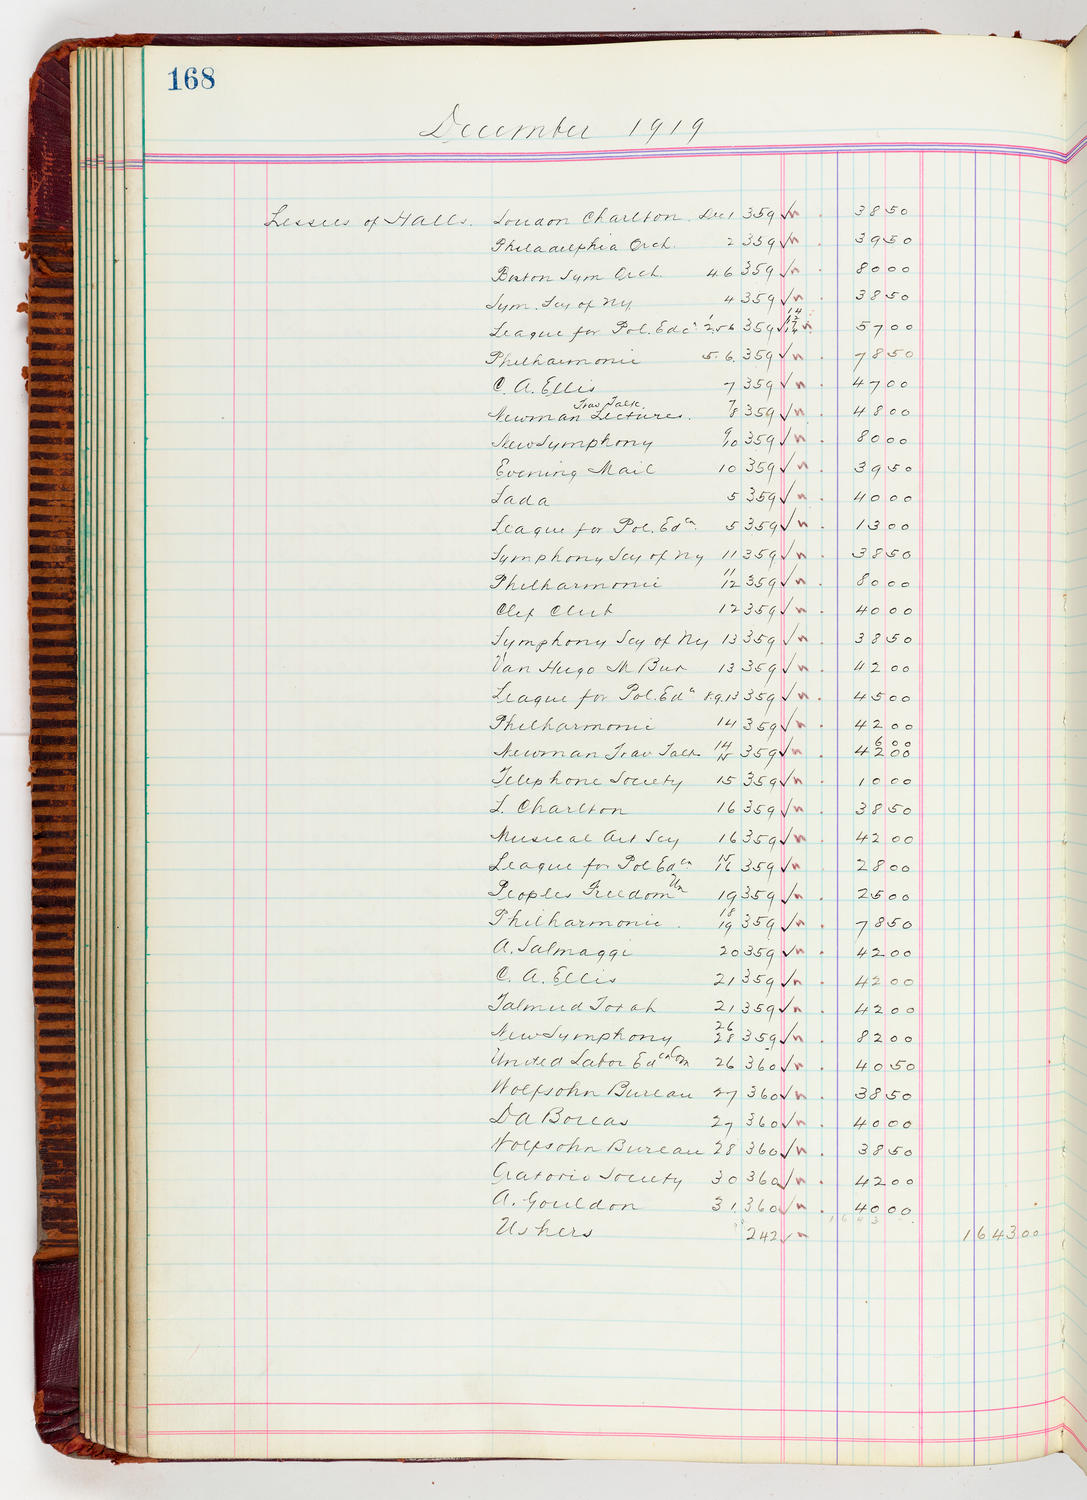 168
December 1919
Lessees of Halls. Loudon Charlton. Dec 1 359 √n . 38 50
Philadelphia Orch. 2 359 √n . 39 50
Boston Sym Orch. 4.6 359 √n . 80 00
Sym. Scy of Ny 4 359 √n . 38 50
League for Pol. Edc 359 √ n 57 00
Philharmonic 5.6. 359 √n . 78 50
C. A. Ellis 7 359 √n . 47 00
Newman Trav Talk Lectures. 7/8 359 √n . 48 00
New Symphony 9/10 359 √n . 80 00
Evening Mail 10 359 √n . 39 50
Lada 5 359 √n . 40 00
League for Pol. Edcn 5 359 √n . 13 00
Symphony Scy of Ny 11 359 √n . 38 50
Philharmonic 11/12 359 √n . 80 00
Clef Club 12 359 √n . 40 00
Symphony Scy of Ny 13 359 √n . 38 50
Van Hugo M Bur 13 359 √n . 42 00
League for Pol. Edn 8.9.13 359 √n . 45 00
Philharmonic 14 359 √n . 42 00
Newman Trav Talk 14/15 359 √n . 46 00
Telephone Society 15 359 √n . 10 00
L. Charlton 16 359 √n . 38 50
Musical Art Scy 16 359 √n . 42 00
League for Pol Edcn 15/16 359 √n 28 00
Peoples Freedom Un 19 359 √n . 25 00
Philharmonic . 18/19 359 √n . 78 50
A. Salmaggi 20 359 √n . 42 00
C. A. Ellis 21 359 √n . 42 00
Talmud Torah 21 359 √n . 42 00
New Symphony 26/28 359 √n . 82 00
United Labor Edcn Com 26 360 √n . 40 50
Wolfsohn Bureau 27 360 √n . 38 50
Da Boreas 27 360 √n . 40 00
Wolfsohn Bureau 28 360 √n . 38 50
Oratorio Society 30 360 √n . 42 00
A. Gouldon 31. 360 √n . 40 00
Ushers 242 √n 1643 00